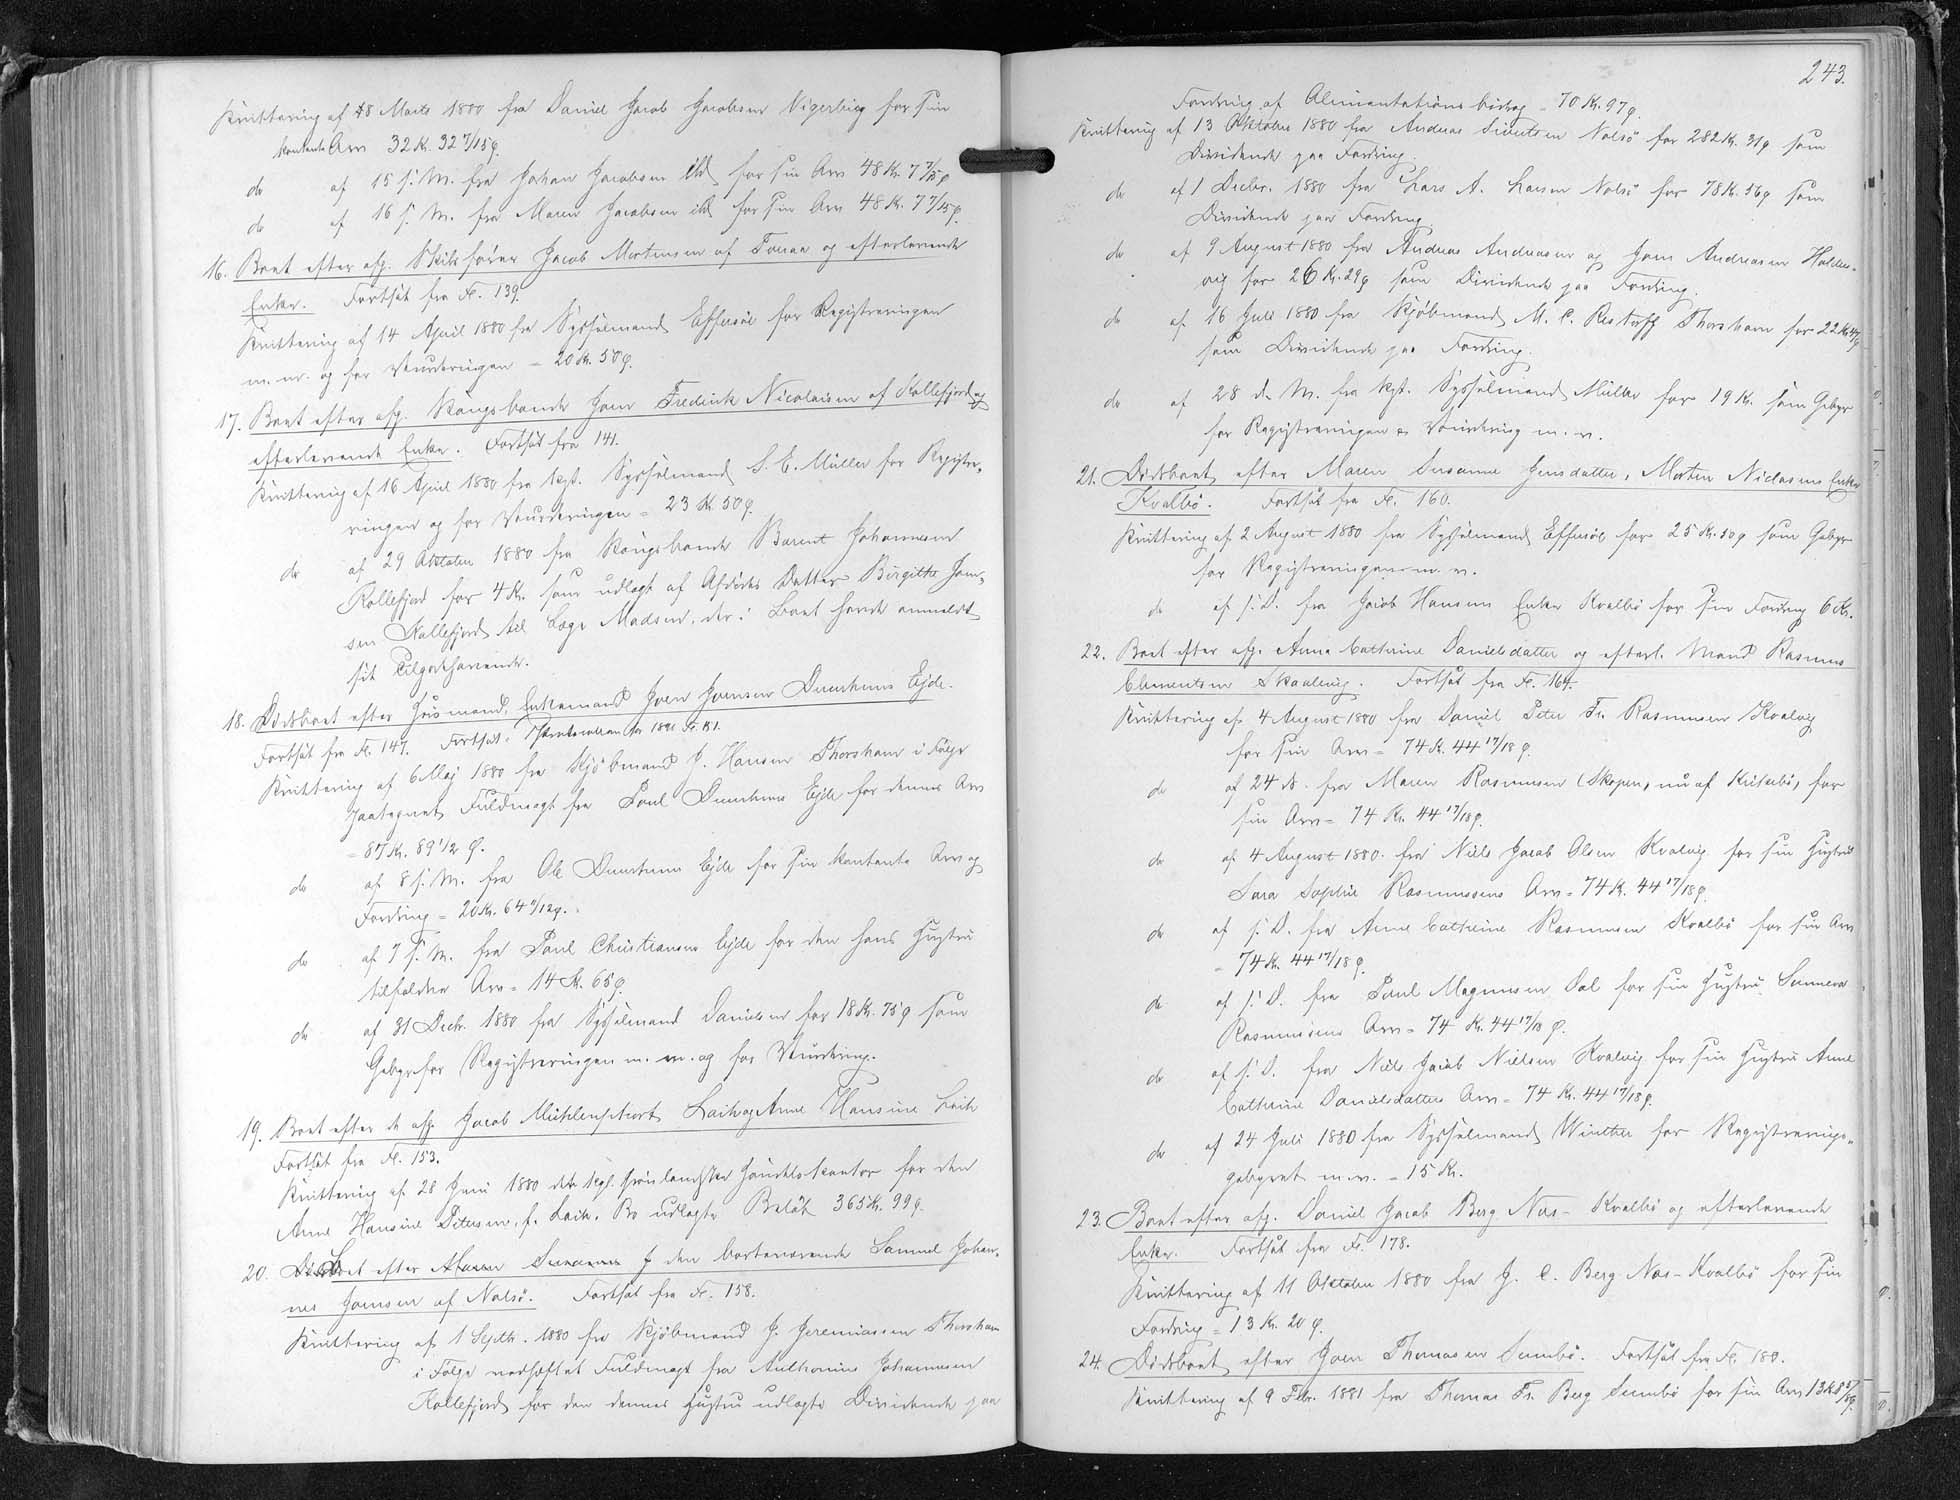 Kvittering af 18 Marts 1880 fra Daniel Jacob Jacobsen Vigerbirg for sin
kontante Arv 32 Kr. 32 7/15 Ø.
do af 15 s. M. fra Johan Jacobsen ibd for sin Arv 48 Kr. 7 7/15 Ø
do af 16 s. M. fra Maren Jacobsen ibd for sin Arv 48 Kr. 7 7/15 Ø.
16. Boet efter afg. Skibsfører Jacob Mortensen af Toraa og efterlevende
Enke. Fortsat fra Fol. 139.
Kvittering af 14 April 1880 fra Sysselmand Effersöe for Registreringen
m. m. og for Vurderingen = 20 Kr. 50 Ø.
17. Boet efter afg. Kongsbonde Joen Frederik Nicolaisen af Kollefjord og
efterlevende Enke. Fortsat fra 141.
Kvittering af 16 April 1880 fra kgst. Sysselmand S. E. Müller for Registre-
ringen og for Vurderingen = 23 Kr. 50 Ø.
do af 29 Oktober 1880 fra Kongsbonde Barent Johannesen
Kollefjord for 4 Kr. som udlagt af Afdödes Datter Birgitte Joen-
sen Kollefjord til Lage Madsen, der i Boet havde anmeldt
sit Tilgodehavende.
18. Dödsboet efter Huusmand, Enkemand Joen Joensen Duurhuus Ejde.
Fortsat fra Fol. 147. Fortsat i Skifteprotokollen for 1891 Fol. 131.
Kvittering af 6 Maj 1880 fra Kjöbmand J. Hansen Thorshavn i Fölge
paategnet Fuldmagt fra Poul Duurhuus Ejde for dennes Arv
= 87 Kr. 89 1/2 Ø.
do af 8 s. M. fra Ole Duurhuus Ejde for sin kontante Arv og
Fordring = 20 Kr. 64 1/12 Ø.
do af 7 s. M. fra Poul Christiansen Ejde for den hans Hustru
tilfaldne Arv = 14 Kr. 65 Ø.
do af 31 Decbr. 1880 fra Sysselmand Danielsen for 18 Kr. 75 Ø som
Gebyr for Registreringen m. m. og for Vurdering.
19. Boet efter de afg. Jacob Mühlenphort Leith og Anne Hansine Leith
Fortsat fra Fol. 153.
Kvittering af 28 Juni 1880 det kgl. Grönlandske Handelskontor for den
Anne Hansine Petersen, f. Leith, Bo udlagte Beløb 365 Kr. 99 Ø.
20. Boet efter den bortværende Samuel Johan-
nes Joensen af Nolsö. Fortsat fra Fol. 158.
Kvittering af 1 Septbr. 1880 fra Kjöbmand J. Jeremiassen Thorshavn
i Fölge vedhæftet Fuldmagt fra Anthonius Johannesen
Kollefjord for den dennes Hustru udlagte Dividende paa
243.
Fordring af Alimentationsbidrag = 70 Kr. 97 Ø.
Kvittering af 13 Oktober 1880 fra Andreas Sivertsen Nolsö for 282 Kr. 31 Ø som
Dividende paa Fordring.
do af 1 Decbr. 1880 fra Lars A. Larsen Nolsö for 78 Kr. 56 Ø som
Dividende paa Fordring
do af 9 August 1880 fra Andreas Andreasen og Joen Andreasen Halder-
vig for 26 Kr. 29 Ø som Dividende paa Fordring.
do af 16 Juli 1880 fra Kjöbmand M. C. Restorff Thorshavn for 22 Kr. 47 Ø
som Dividende paa Fordring.
do af 28 d. M. fra kgst. Sysselmand Müller for 19 Kr. som Gebyr
for Registreringen & Vurdering m. v.
21. Dödsboet efter Maren Susanne Jensdatter, Morten Niclasens Enke
Kvalbö. Fortsat fra Fol. 160.
Kvittering af 2 August 1880 fra Sysselmand Effersöe for 25 Kr. 50 Ø som Gebyr
for Registreringen m. v.
do af s. D. fra Jacob Hansens Enke Kvalbö for sin Fordring 6 Kr.
22. Boet efter afg. Anne Cathrine Danielsdatter og efterl. Mand Rasmus
Clementsen Skaaleviig. Fortsat fra Fol. 164.
Kvittering af 4 August 1880 fra Daniel Peter Fr. Rasmussen Kvalvig
for sin Arv = 74 Kr. 44 17/18 Ø.
do af 24 do. fra Maren Rasmussen Skopen, nu af Kirkebö, for
sin Arv = 74 Kr. 44 17/18 Ø.
do af 4 August 1880. fra Niels Jacob Olsen Kvalvig for sin Hustru
Sara Sophie Rasmussens Arv = 74 Kr. 44 17/18 Ø.
do af s. D. fra Anne Cathrine Rasmussen Kvalbö for sin Arv
= 74 Kr. 44 17/18 Ø.
do af s. D. fra Poul Magnussen Dal for sin Hustru Sunneva
Rasmussens Arv = 74 Kr. 44 17/18 Ø.
do af s. D. fra Niels Jacob Nielsen Kvalvig for sin Hustru Anne
Cathrine Danielsdatters Arv = 74 Kr. 44 17/18 Ø.
do af 24 Juli 1880 fra Sysselmand Winther for Registrerings-
gebyret m. v. = 15 Kr.
23. Boet efter afg. Daniel Jacob Berg Næs - Kvalbö og efterlevende
Enke. Fortsat fra Fol. 178.
Kvittering af 11 Oktober 1880 fra J. C. Berg Næs - Kvalbö for sin
Fordring = 13 Kr. 20 Ø.
24. Dödsboet efter Joen Thomasen Sumbö. Fortsat fra Fol. 180.
Kvittering af 9 Febr. 1881 fra Thomas Fr. Berg Sumbö for sin Arv